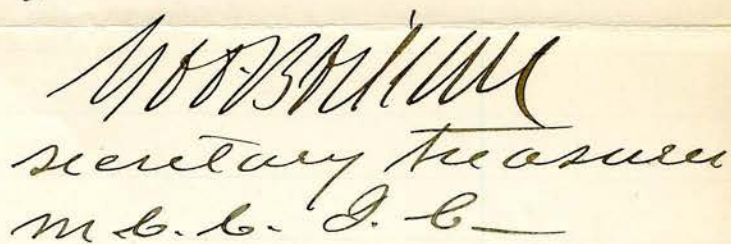 secretary treasurer
M. C. C. I. C